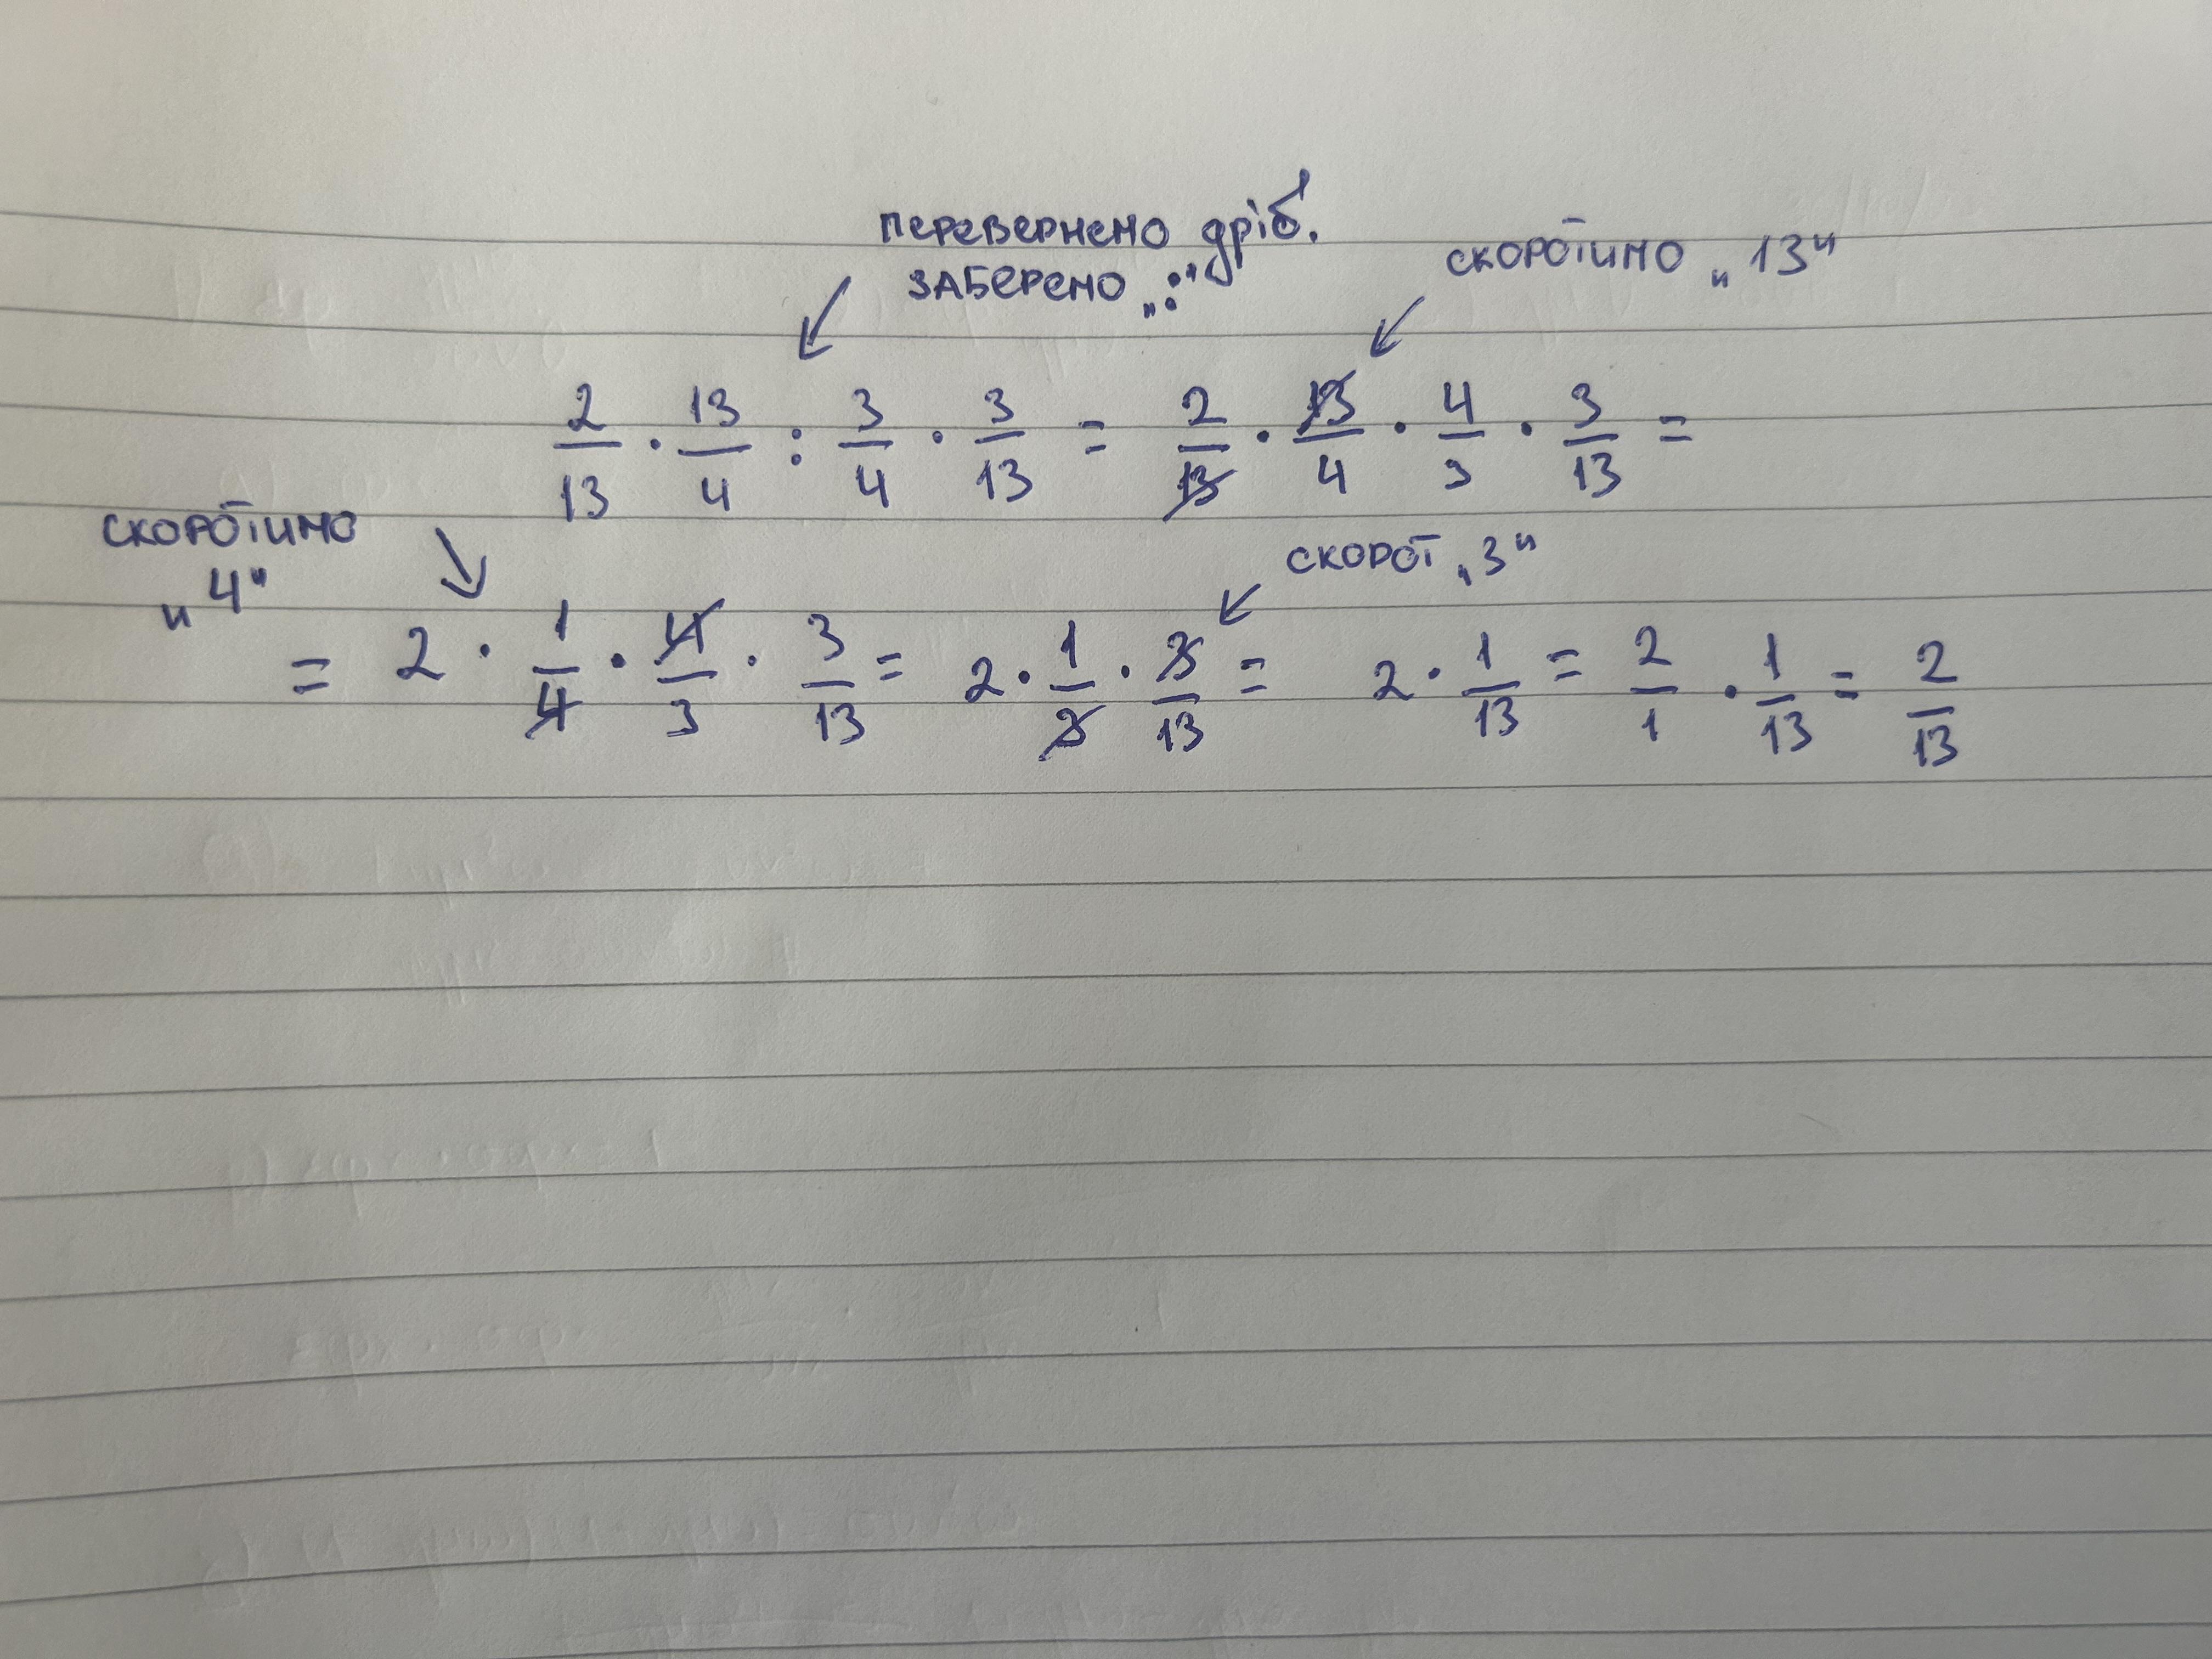 перевернемо дріб.
заберемо „:"
скоротимо „13"
2/13 · 13/4 : 3/4 · 3/13 = 2/13 · 13/4 · 4/3 · 3/13 =
скоротимо
„4"
скорот „3"
= 2 · 1/4 · 4/3 · 3/13 = 2 · 1/3 · 3/13 = 2 · 1/13 = 2/1 · 1/13 = 2/13